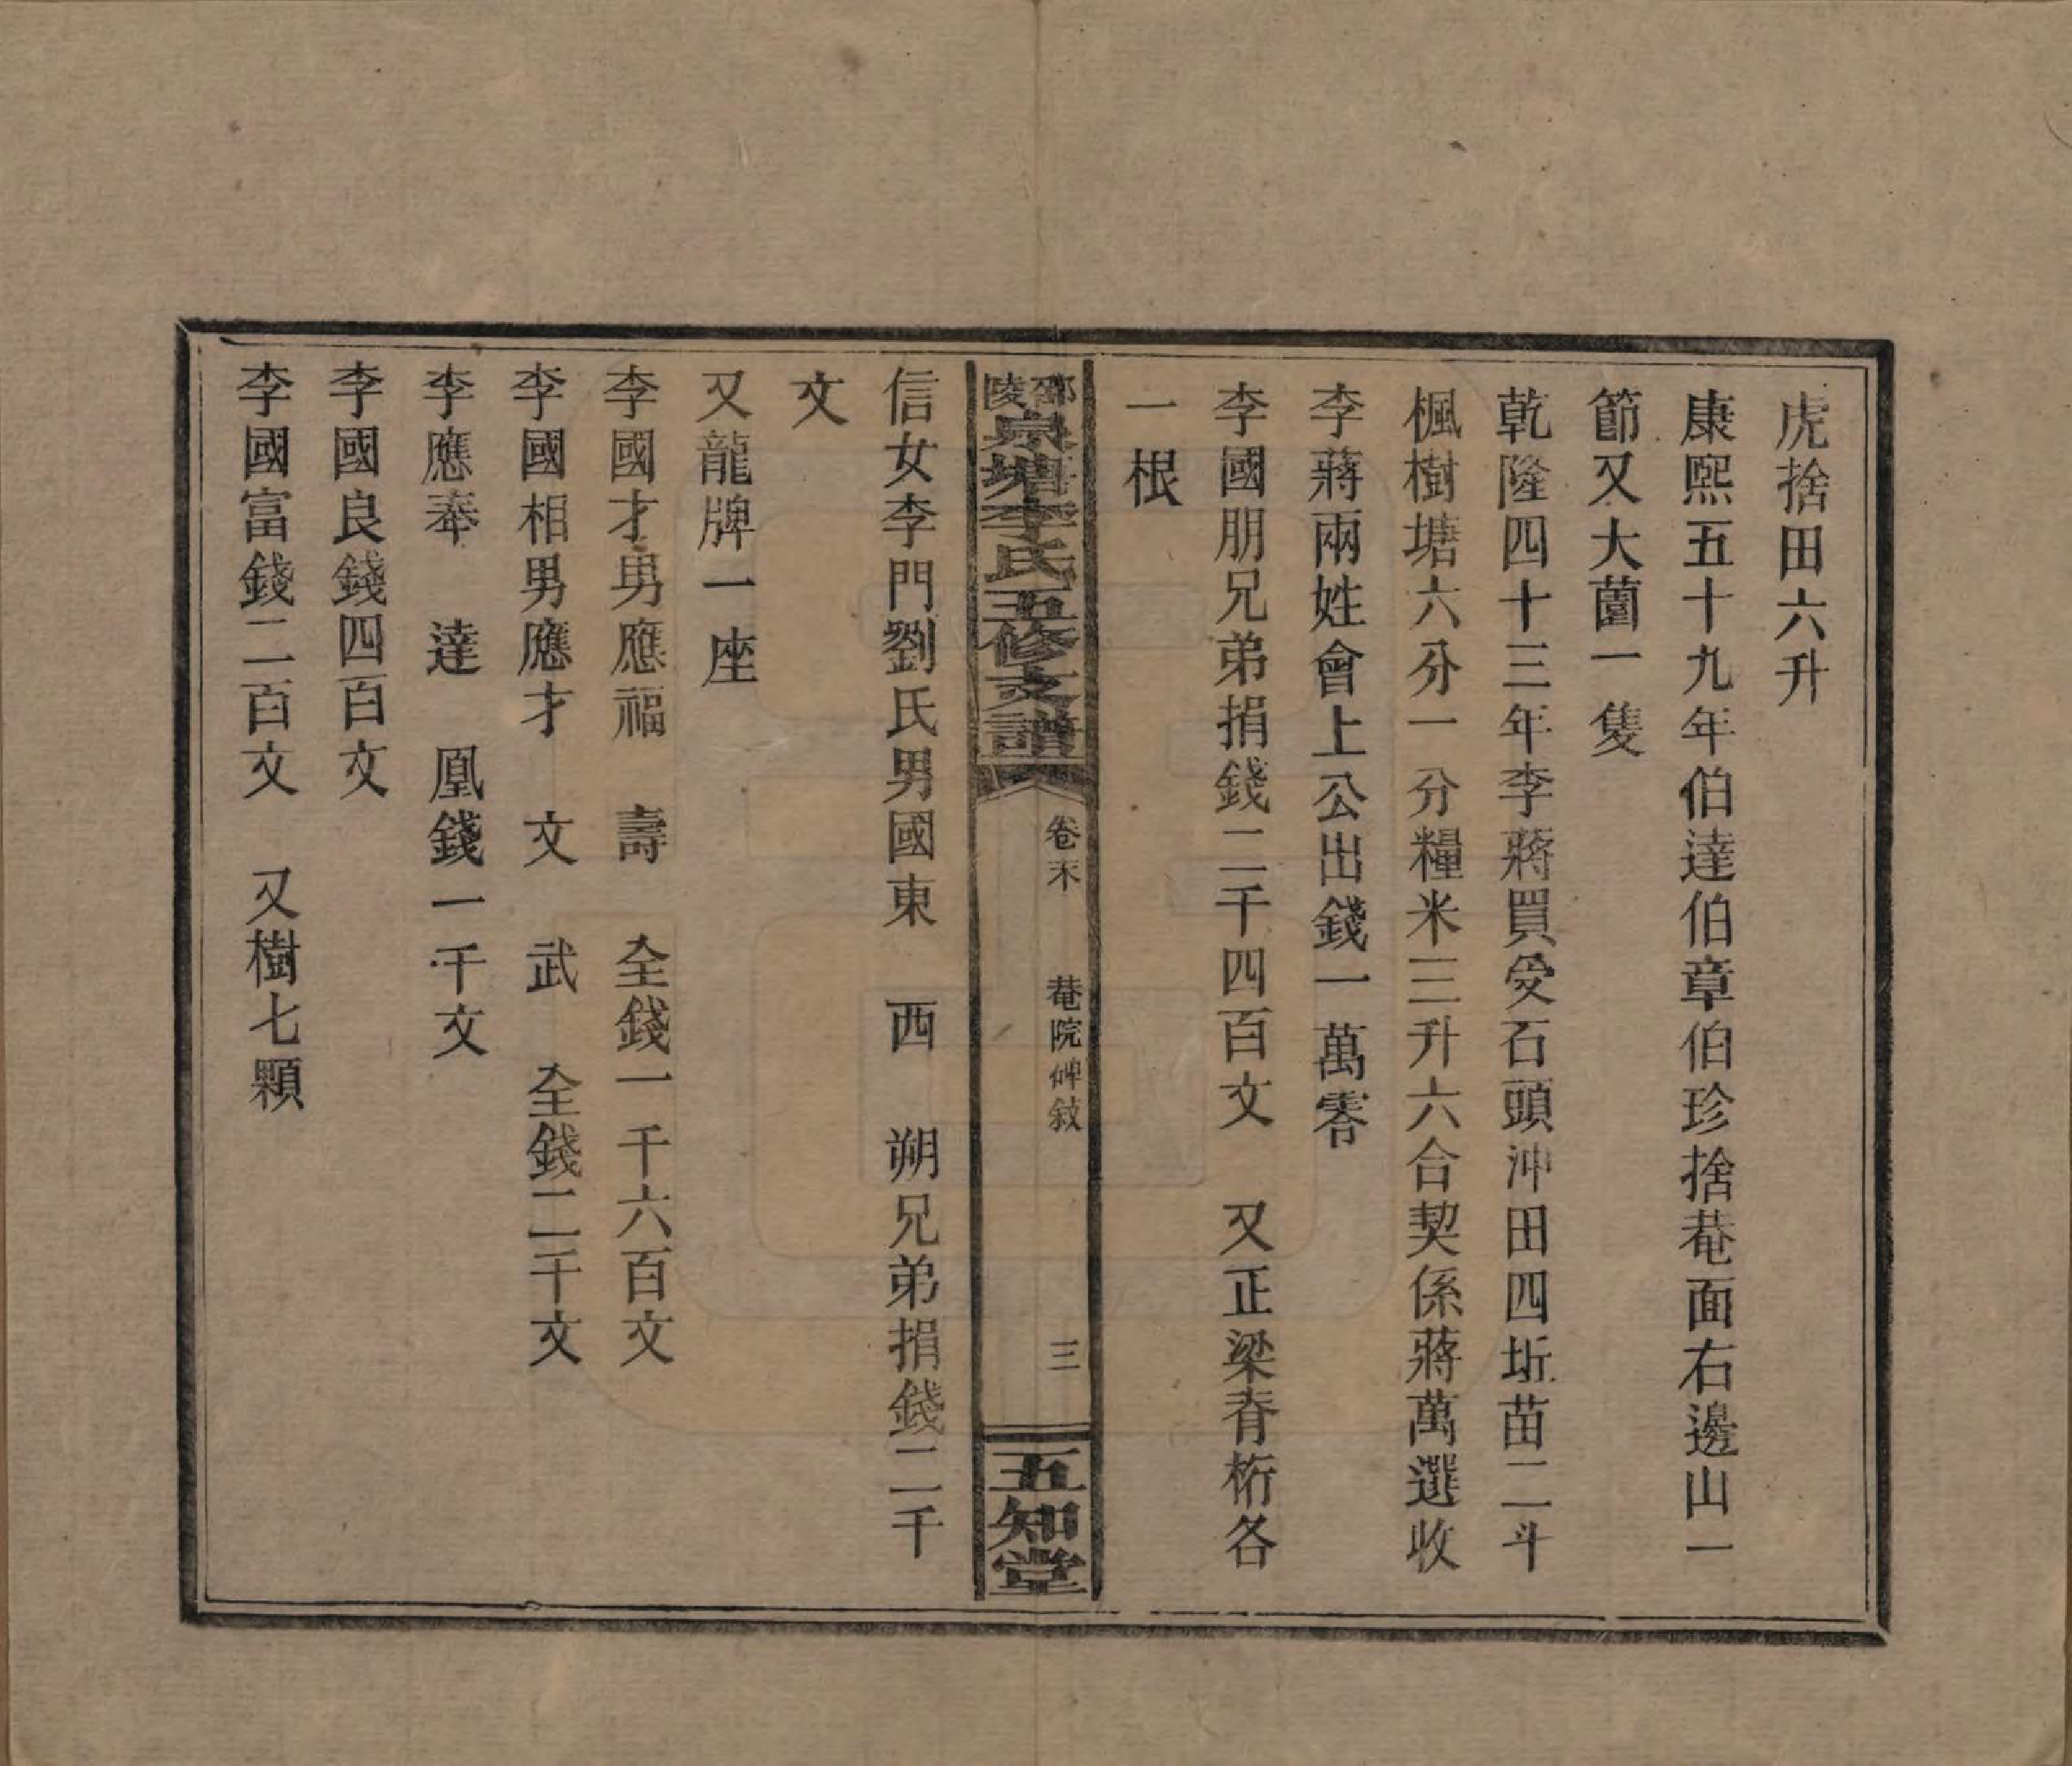 虎捨田六升
康熙五十九年伯達伯章伯珍捨菴面右邊山一
節又大薗一隻
乾隆四十三年李蔣買受石頭沖田四坵苗二斗
楓樹塘六分一分糧米三升六合契係蔣萬選收
李蔣兩姓會上公出錢一萬零
李國朋兄弟捐錢二千四百文　又正梁脊桁各
一根
邵陵泉塘李氏五修支譜　卷末　菴院碑敘　三　五知堂
信女李門劉氏男國東　西　朔兄弟捐錢二千
文
又龍牌一座
李國才男應福　壽　全錢一千六百文
李國相男應才　文　武　全錢二千文
李應奉　達　凰錢一千文
李國良錢四百文
李國富錢二百文　又樹七顆